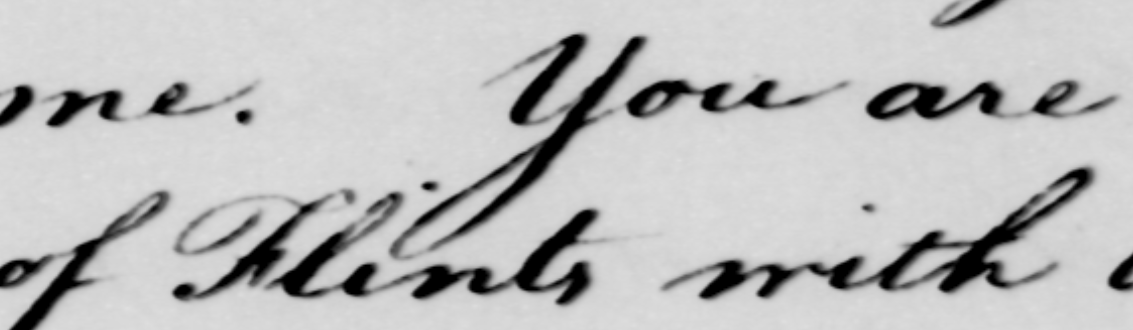 me. You are
of Flints with